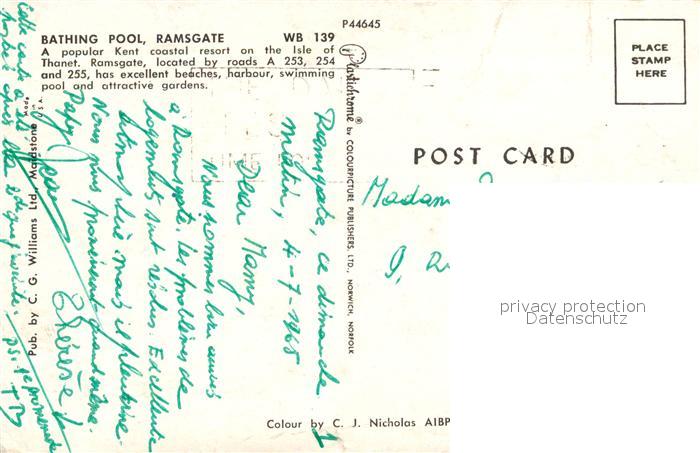 P44645
BATHING POOL, RAMSGATE WB 139
A popular Kent coastal resort on the Isle of
Thanet. Ramsgate, located by roads A 253, 254
and 255, has excellent beaches, harbour, swimming
pool and attractive gardens.
Plastichrome ® by COLOURPICTURE PUBLISHERS, LTD., NORWICH, NORFOLK
Pub. by C. G. Williams Ltd., Maidstone
Made in U.S.A.
PLACE
STAMP
HERE
POST CARD
Madam
Ramsgate, ce dimanche
matin, 4-7-1965
Dear Mamy,
Nous sommes bien arrivés
à Ramsgate. Les problèmes de
logements sont résolus. Excellente
mais il pleuvine.
Nous nous promenons quand même.
Papy
Thérèse
Cette carte a été
privacy protection
Datenschutz
Colour by C. J. Nicholas AIBP